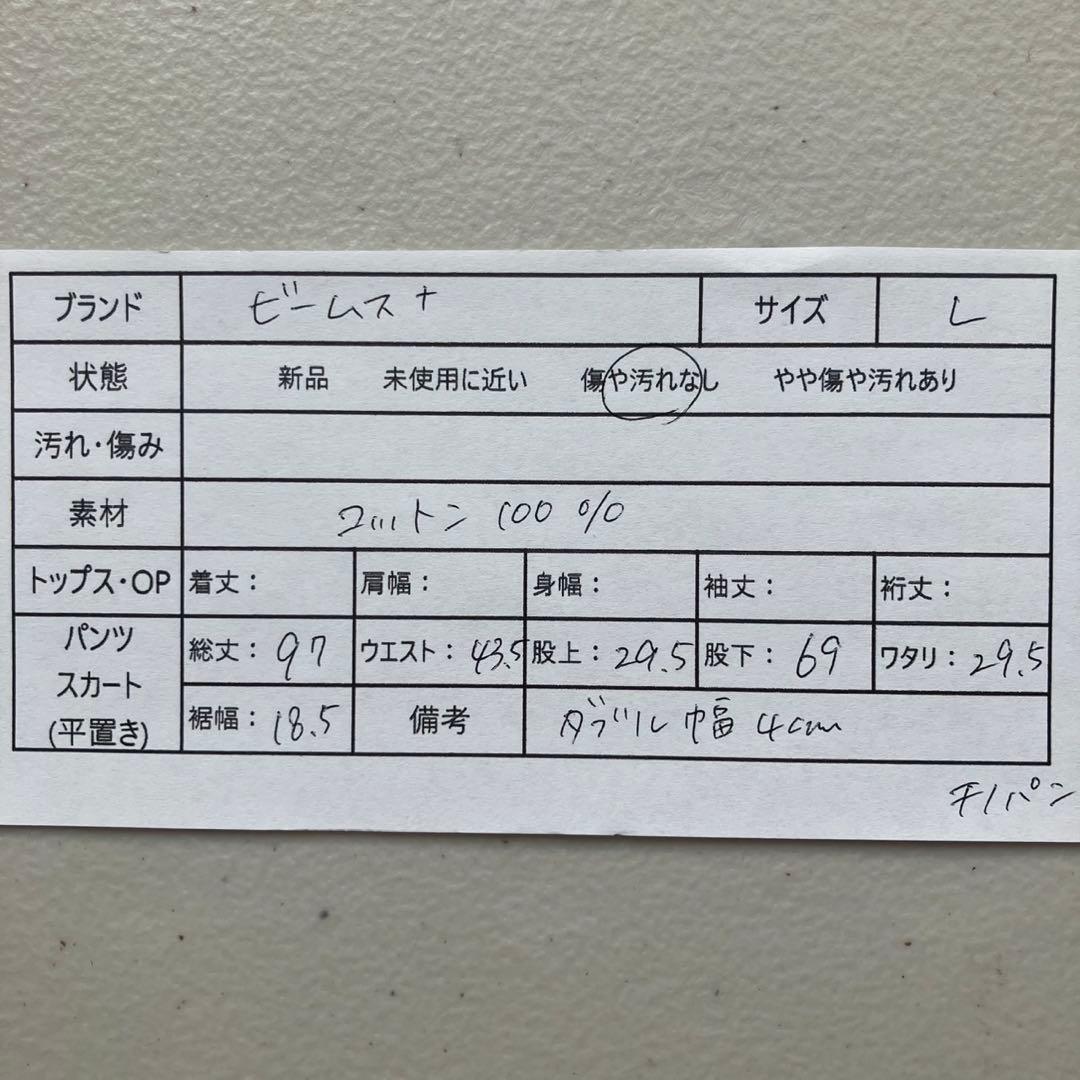 ブランド ビームス+ サイズ L
状態 新品 未使用に近い 傷や汚れなし やや傷や汚れあり
汚れ・傷み
素材 コットン 100%
トップス・OP 着丈: 肩幅: 身幅: 袖丈: 裄丈:
パンツ
スカート
(平置き)
総丈: 97 ウエスト: 43.5 股上: 29.5 股下: 69 ワタリ: 29.5
裾幅: 18.5 備考 ダブル幅 4cm
チノパン